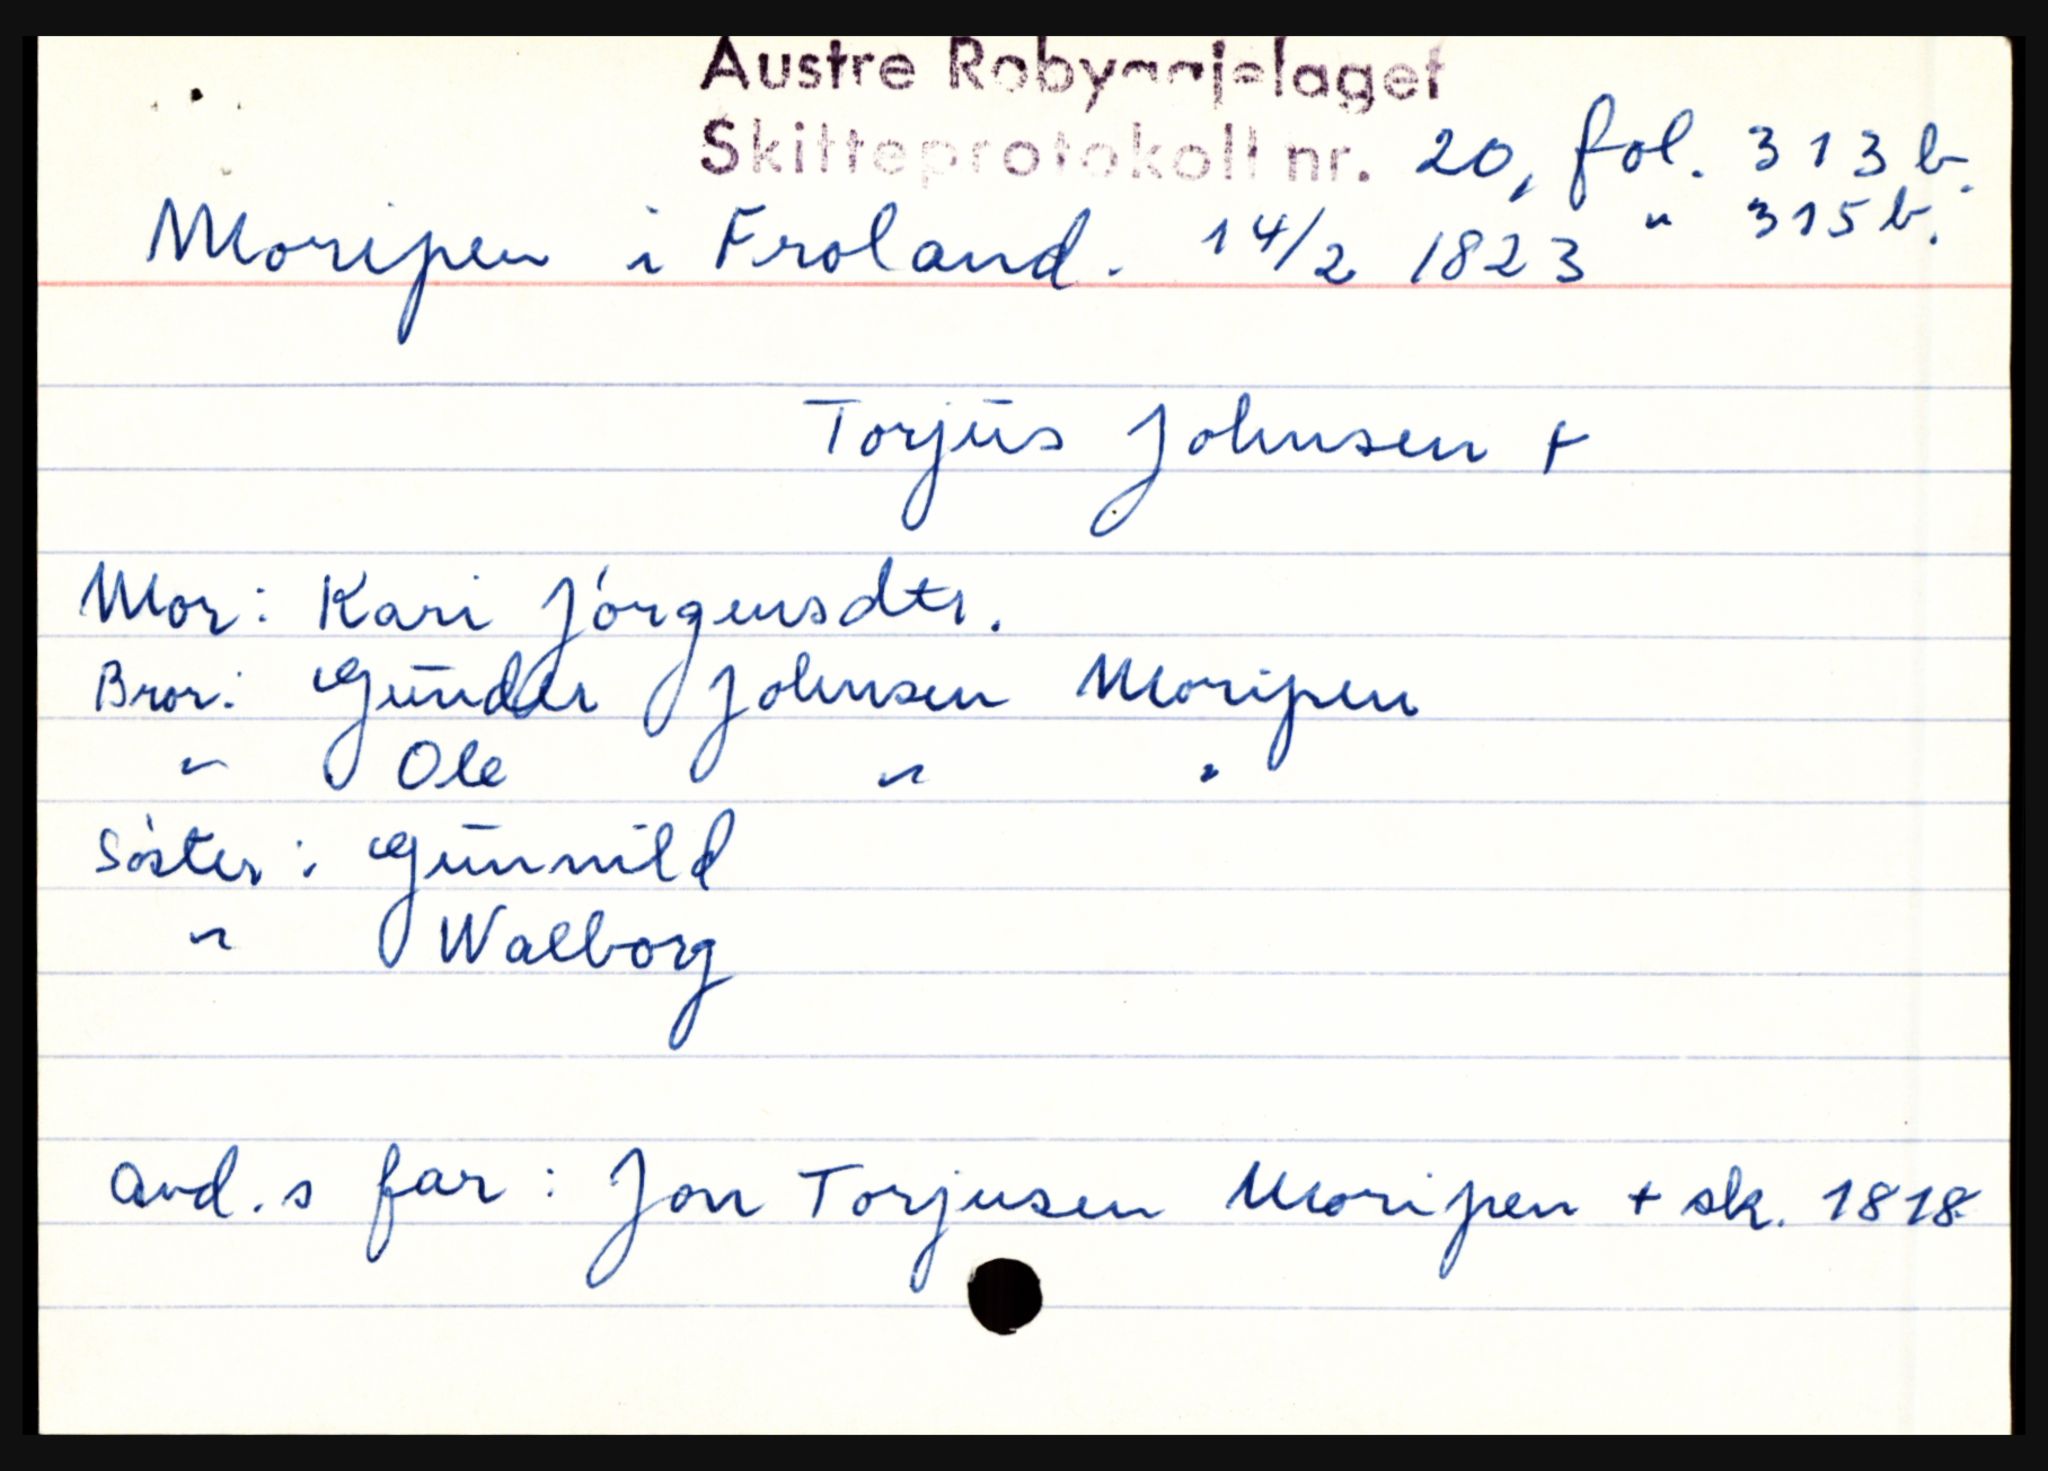 Austre Robyggjelaget
Skifteprotokoll nr. 20, fol. 313 b.
Moripen i Froland. 14/2 1823 " 315 b.
Torjus Johnsen +
Mor: Kari Jörgensdtr.
Bror: Gunder Johnsen Moripen
" Ole " "
Söster: Gunnild
" Walborg
Avd.s far: Jon Torjusen Moripen + sk. 1818